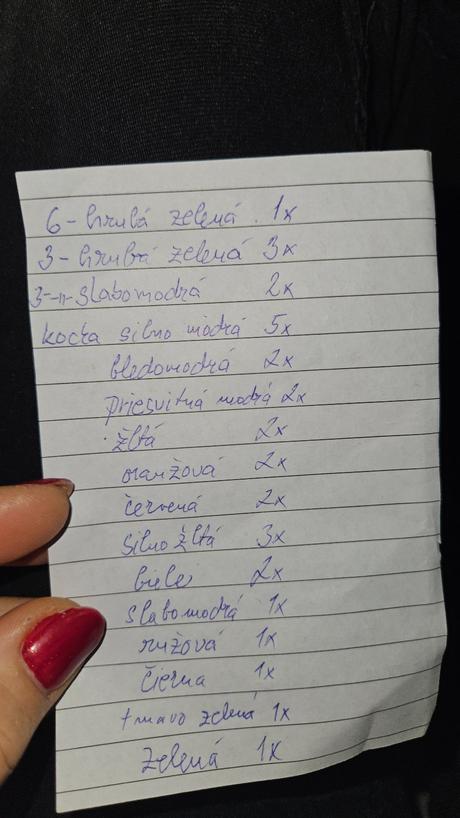 6 - hrubá zelená 1x
3 - hrubá zelená 3x
3 -"- slabomodrá 2x
kocka silno modrá 5x
bledomodrá 2x
priesvitná modrá 2x
žltá 2x
oranžová 2x
červená 2x
silno žltá 3x
biele 2x
slabomodrá 1x
ružová 1x
čierna 1x
tmavo zelená 1x
zelená 1x